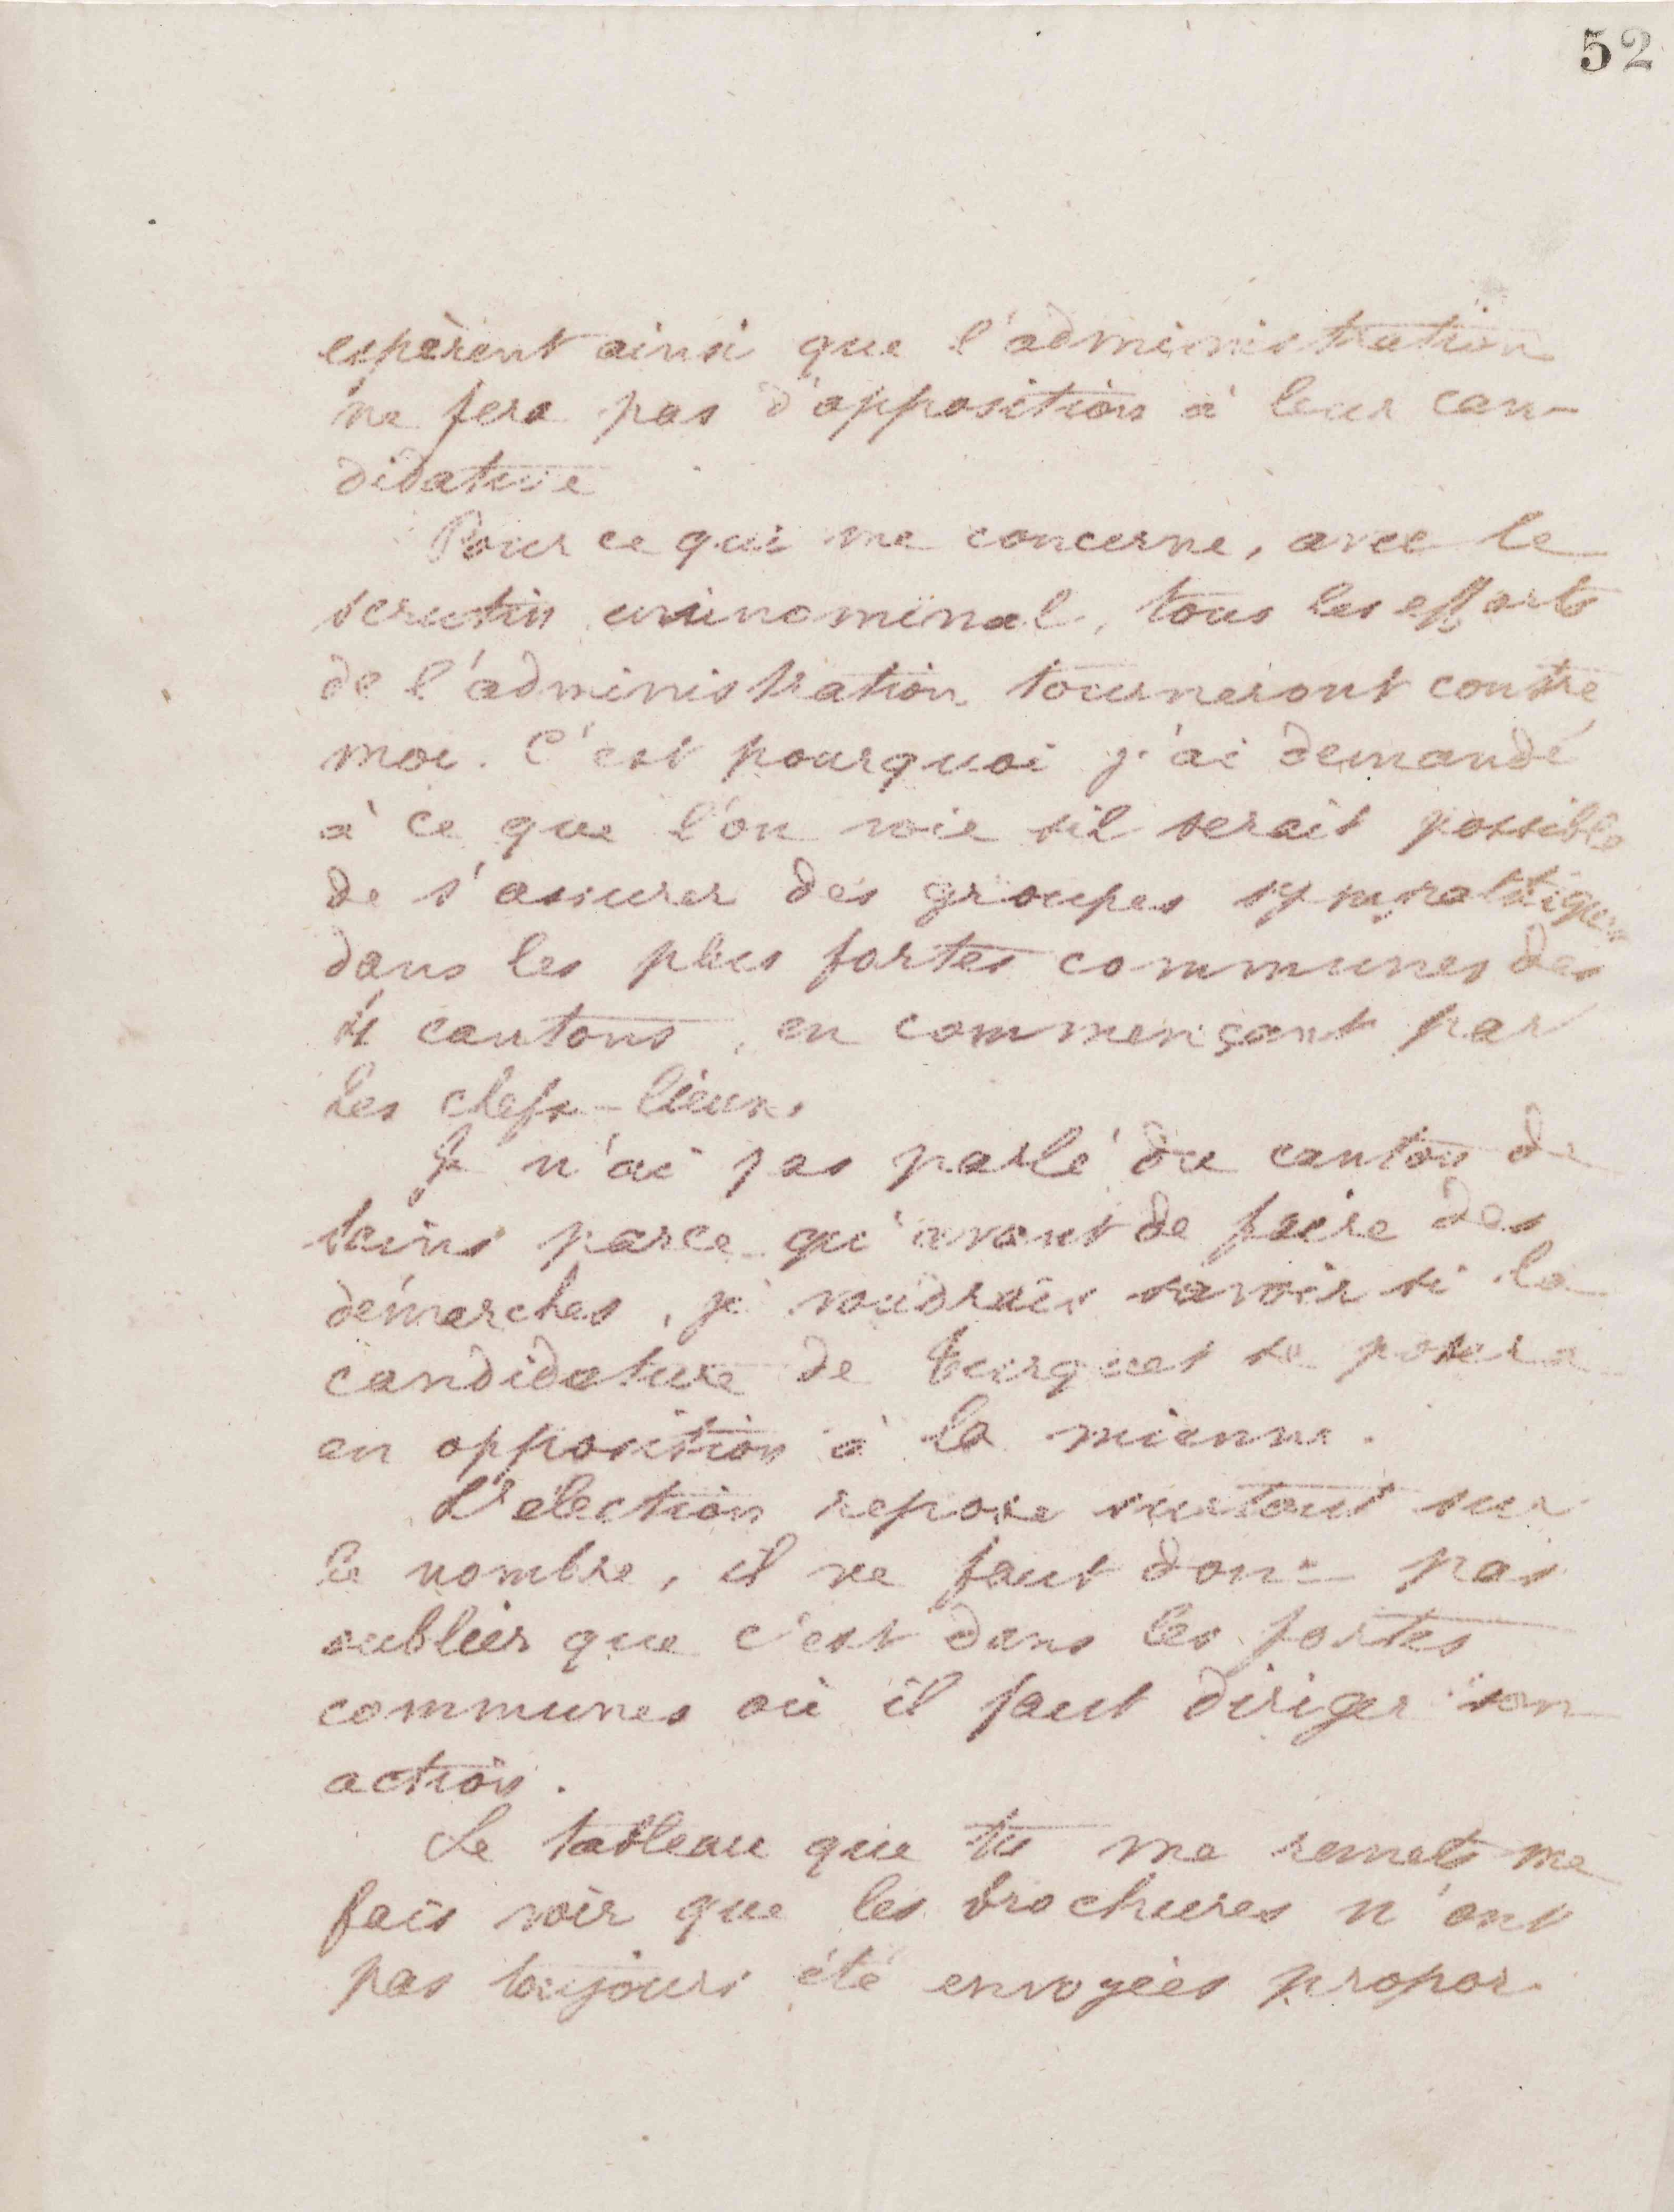 52
espèrent ainsi que l'administration
ne fera pas d'opposition à leur can-
didature
Pour ce qui me concerne, avec le
scrutin uninominal, tous les efforts
de l'administration tourneront contre
moi. C'est pourquoi j'ai demandé
à ce que l'on voie s'il serait possible
de s'assurer des groupes sympathiques
dans les plus fortes communes des
4 cantons, en commençant par
les chefs-lieux.
Je n'ai pas parlé du canton de
parce qu'avant de faire des
démarches, je voudrais savoir si la
candidature de Turquet se posera
en opposition à la mienne.
L'élection repose surtout sur
le nombre, il ne faut donc pas
oublier que c'est dans les fortes
communes où il faut diriger son
action.
Le tableau que tu me remets me
fais voir que les brochures n'ont
pas toujours été envoyées propor-